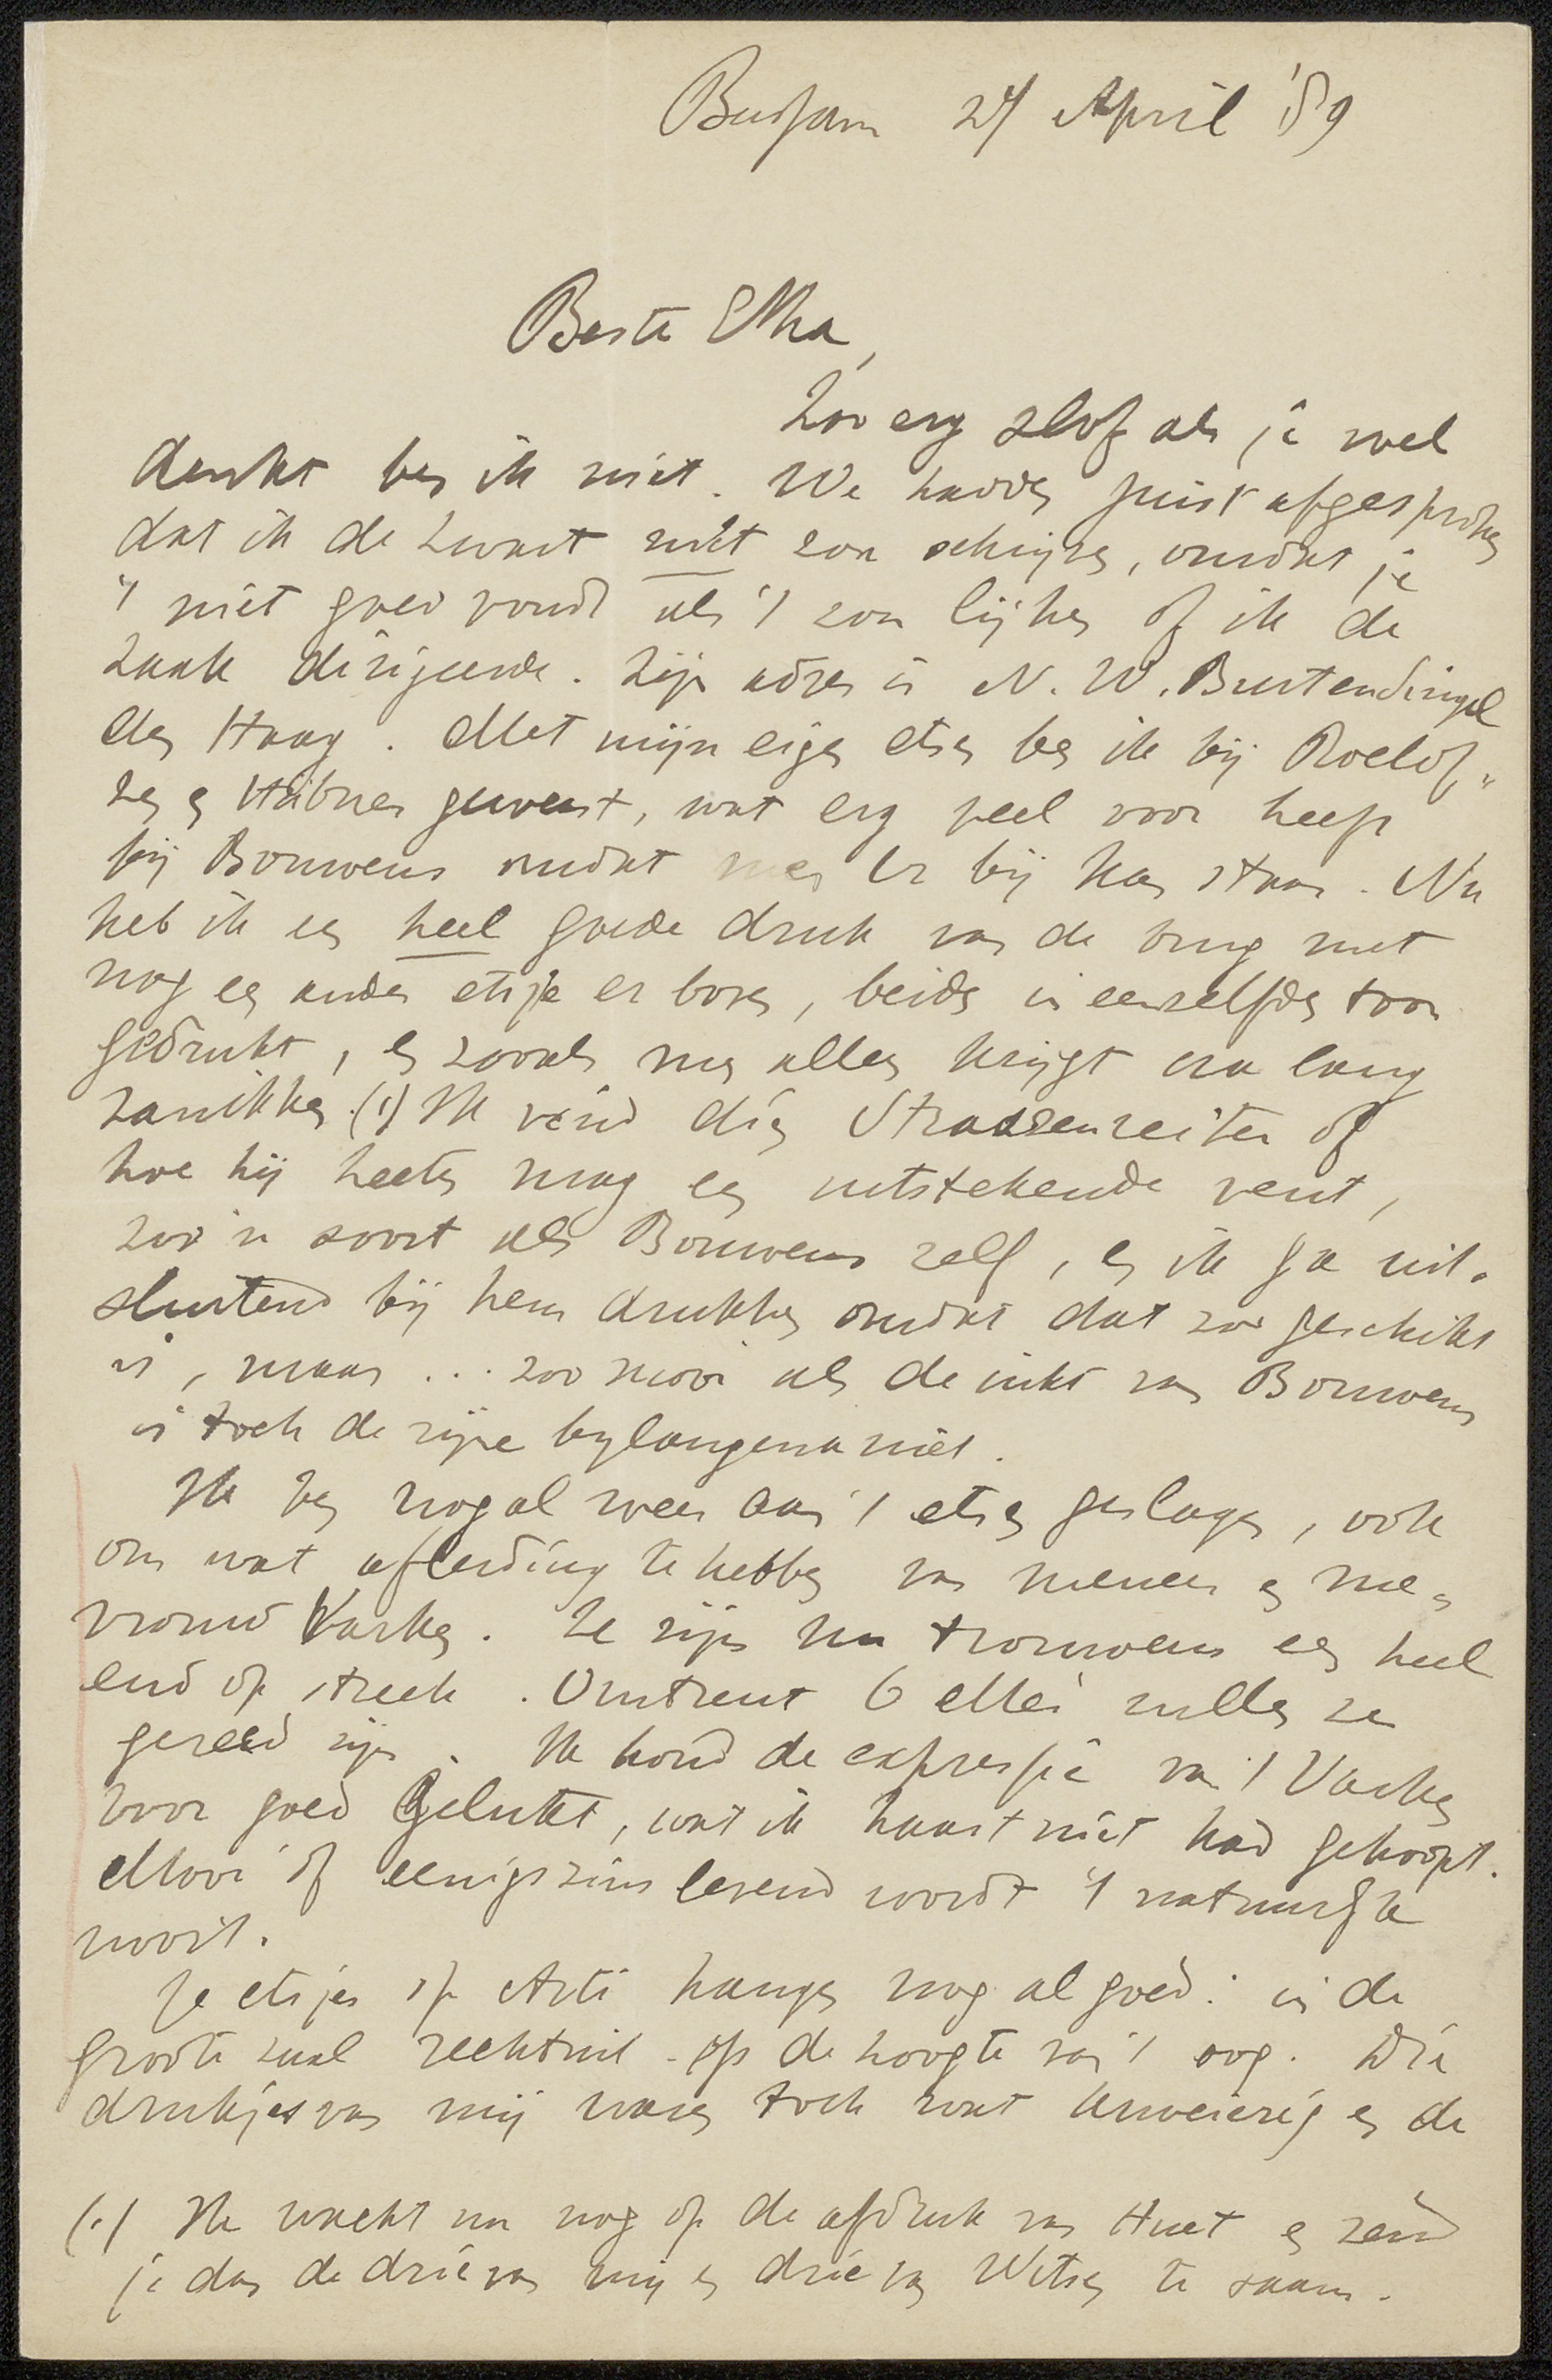 Bussum 24 April '89
Beste Etha,
Zoo erg slof als je wel
denkt ben ik niet. We hadden juist afgesproken
dat ik de Zwart niet zou schrijven, omdat je
't niet goed vondt als 't zou lijken of ik de
zaak dirigeerde. Zijn adres is N. W. Buitensingel
den Haag. Met mijn eigen etsen ben ik bij Roelof„
zen en Hübner geweest, wat erg veel voor heeft
bij Bouwens omdat men er bij kan staan. Nu
heb ik een heel goede druk van de brug met
nog een ander etsje er boven, beide in eenzelfden toon
gedrukt, en zooals men alles krijgt na lang
zanikken. (1) Ik vind dien Strassenreiter of
hoe hij heeten mag een uitstekende vent,
zoo'n soort als Bouwens zelf, en ik ga uit-
sluitend bij hem drukken omdat dat zoo geschikt
is, maar ... zoo mooi als de inkt van Bouwens
is toch de zijne bylangena niet.
Ik ben nogal weer aan 't etsen geslagen, ook
om wat afleiding te hebben van meneer en me„
vrouw Varken. Ze zijn nu trouwens een heel
eind op streek. Omtrent 6 Mei zullen ze
gereed zijn. Ik houd de expressie van 't Varken
voor goed gelukt, wat ik haast niet had gehoopt.
Mooi of eenigszins levend wordt 't natuurlijk
nooit.
Je etsjes op Arti hangen nog al goed: in de
groote zaal rechtuit op de hoogte van 't oog. Die
drukjes van mij waren toch wat knoeierig en de
(1) Ik wacht nu nog op de afdruk van Huet en zend
je dan de drie van mij en drie van Witsen te saam.